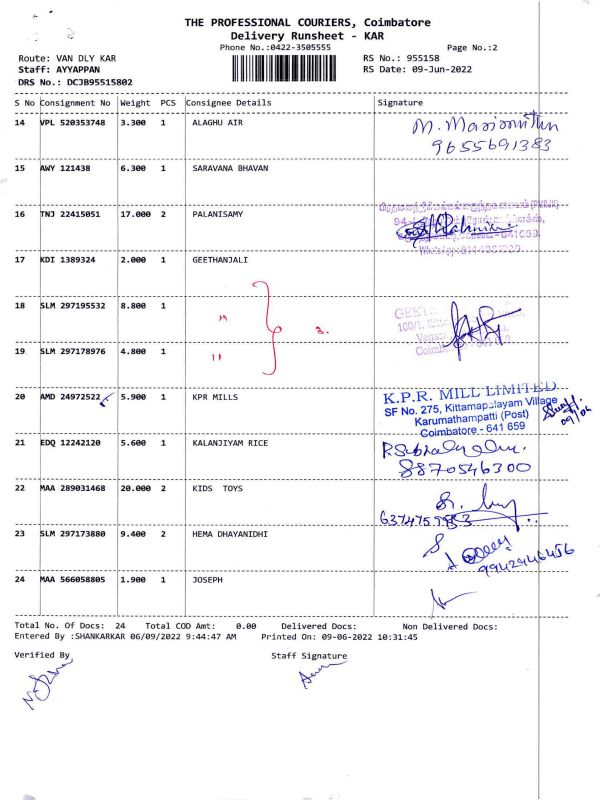 THE PROFESSIONAL COURIERS, Coimbatore
Delivery Runsheet - KAR
Phone No.:0422-3505555 Page No.:2
Route: VAN DLY KAR RS No.: 955158
Staff: AYYAPPAN RS Date: 09-Jun-2022
DRS No.: DCJB95515802
S No Consignment No Weight PCS Consignee Details Signature
14 VPL 520353748 3.300 1 ALAGHU AIR
9655691383
15 AWY 121438 6.300 1 SARAVANA BHAVAN
16 TNJ 22415051 17.000 2 PALANISAMY
17 KDI 1389324 2.000 1 GEETHANJALI
18 SLM 297195532 8.800 1 "
3.
19 SLM 297178976 4.800 1 "
20 AMD 24972522 5.900 1 KPR MILLS
K.P.R. MILL LIMITED
SF No. 275, Kittampalayam Village
Karumathampatti (Post)
Coimbatore - 641 659
21 EDQ 12242120 5.600 1 KALANJIYAM RICE
8870546300
22 MAA 289031468 20.000 2 KIDS TOYS
23 SLM 297173880 9.400 2 HEMA DHAYANIDHI
9942946456
24 MAA 566058805 1.900 1 JOSEPH
Total No. Of Docs: 24 Total COD Amt: 0.00 Delivered Docs: Non Delivered Docs:
Entered By :SHANKARKAR 06/09/2022 9:44:47 AM Printed On: 09-06-2022 10:31:45
Verified By Staff Signature